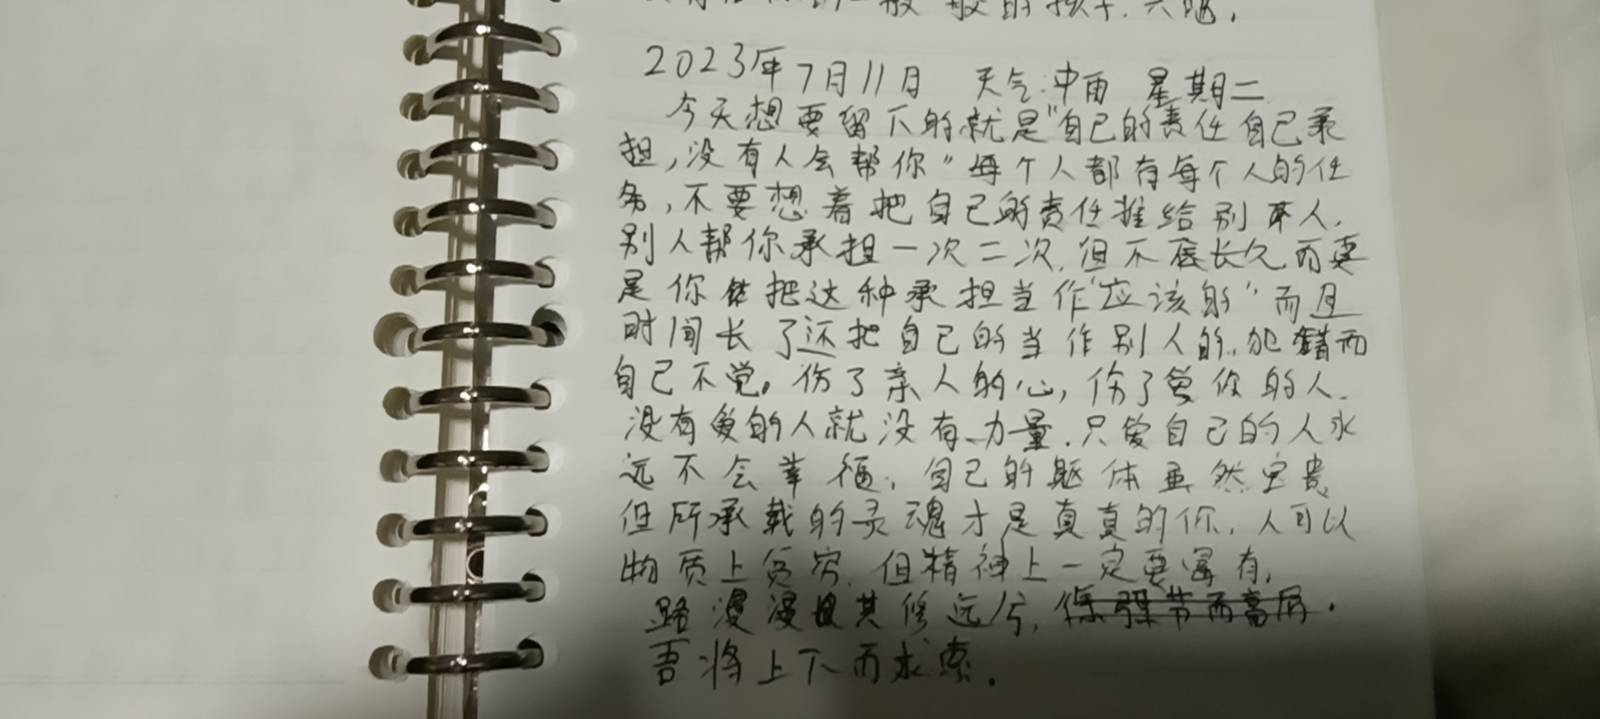 2023年7月11日 天气:中雨 星期二
今天想要留下的就是"自己的责任自己承
担,没有人会帮你"每个人都有每个人的任
务,不要想着把自己的责任推给别人.
别人帮你承担一次二次.但不底长久.而真
是你把这种承担当作"应该的"而且
时间长了还把自己的当作别人的.犯错而
自己不觉。伤了亲人的心,伤了爱你的人.
没有爱的人就没有力量.只爱自己的人永
远不会幸福,自己的躯体虽然宝贵
但所承载的灵魂才是真真的你.人可以
物质上贫穷.但精神上一定要富有,
路漫漫其修远兮,
吾将上下而求索.